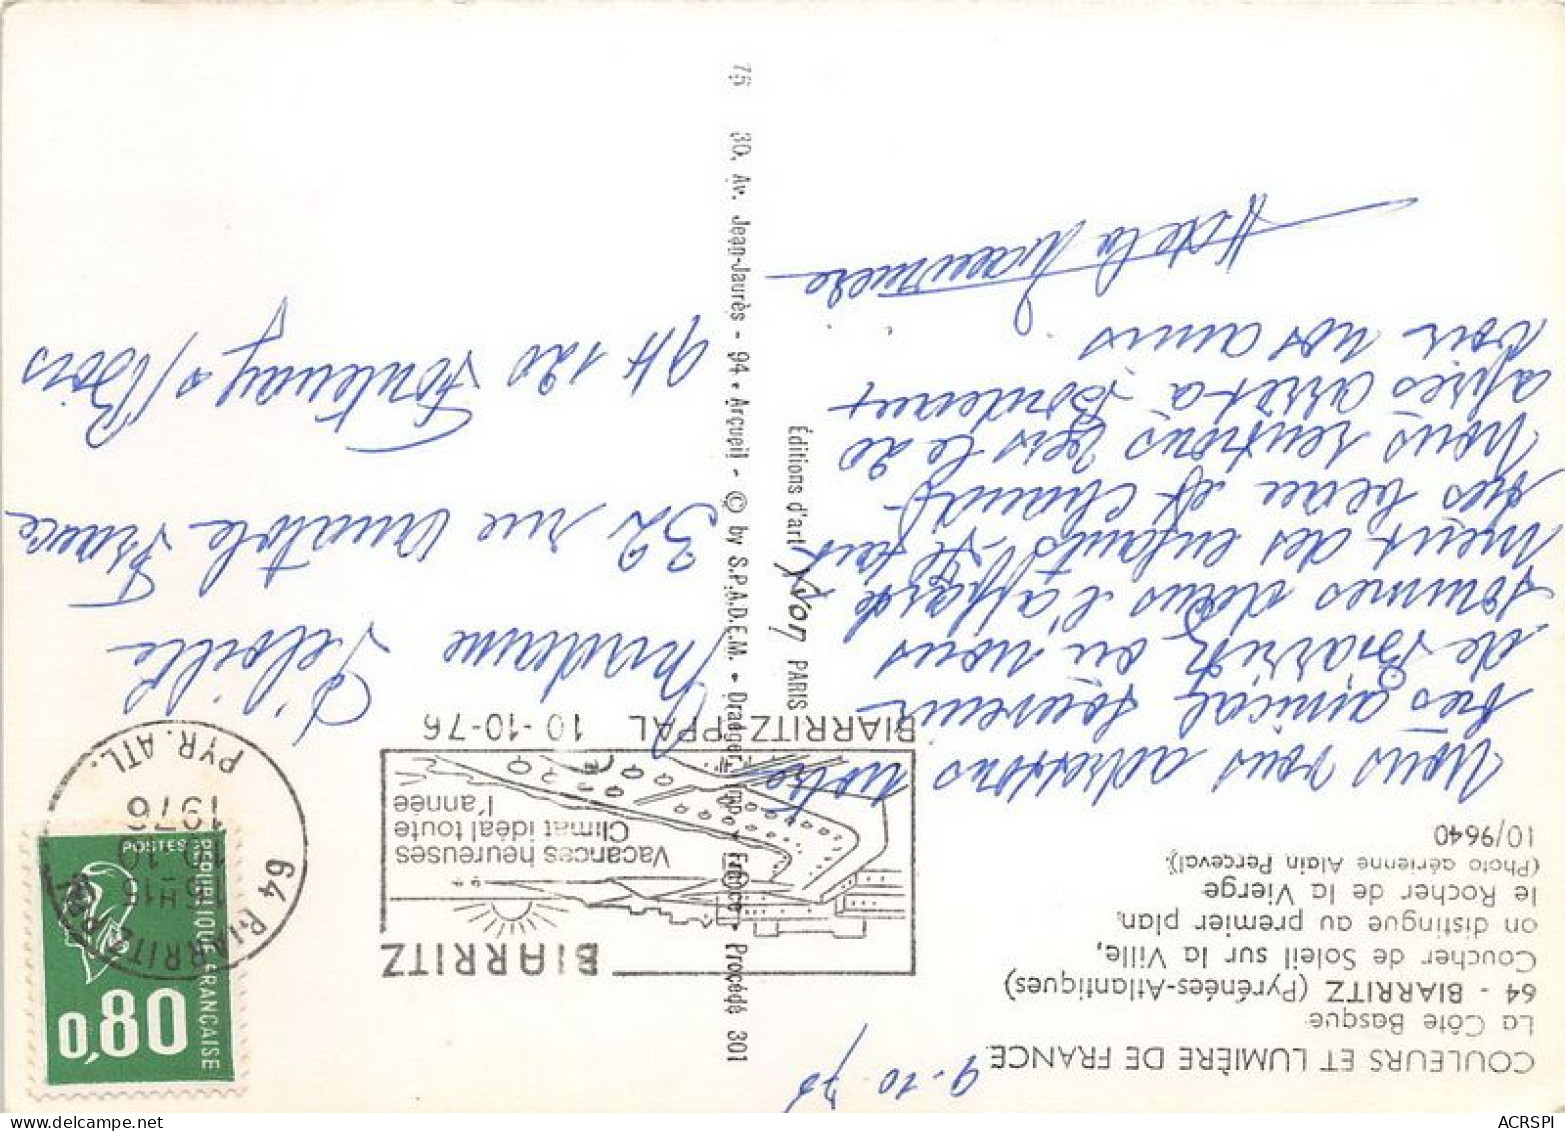 COULEURS ET LUMIÈRE DE FRANCE
La Côte Basque
64 - BIARRITZ (Pyrénées-Atlantiques)
Coucher de Soleil sur la Ville,
on distingue au premier plan,
le Rocher de la Vierge
(Photo aérienne Alain Perceval).
10/9640
Nous vous adressons notre
très amical souvenir
de Biarritz ou nous
sommes dans l'appart
ment des enfants. Il fait
très beau et chaud
Nous rentrons vers le 20
après arrêt à Bordeaux
voir nos amis
Éditions d'art Yvon PARIS
75 30, Av. Jean-Jaurès - 94 - Arcueil - © by S.P.A.D.E.M. - Draeger, imp. - France - Procédé 301
BIARRITZ
Vacances heureuses
Climat idéal toute
l'année
BIARRITZ PPAL 10-10-76
0,80
REPUBLIQUE FRANCAISE
POSTES
64 BIARRITZ
16H15
10-10
1976
PYR. ATL.
Madame
32 rue Anatole France
94 120 Fontenay s/Bois
ACRSPI